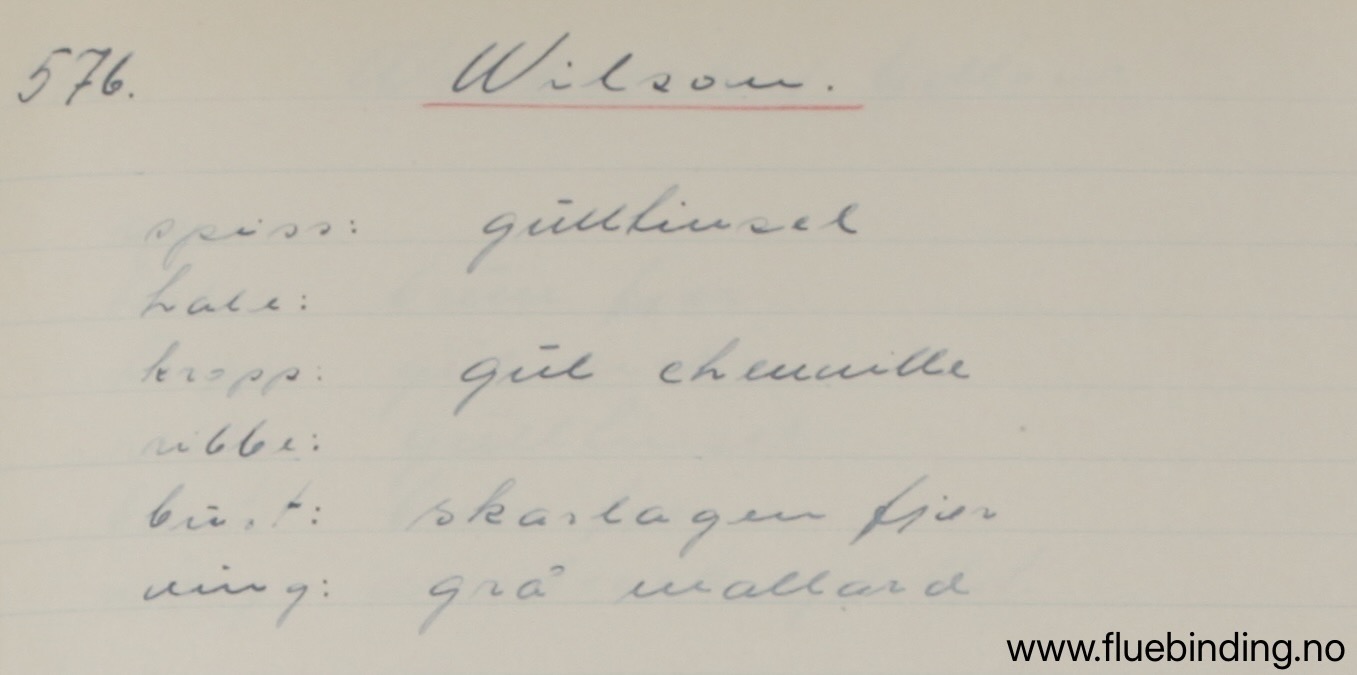 576. Wilson.
spiss: gulltinsel
hale:
kropp: gul chenille
ribbe:
bust: skarlagen fjær
ving: grå mallard
www.fluebinding.no